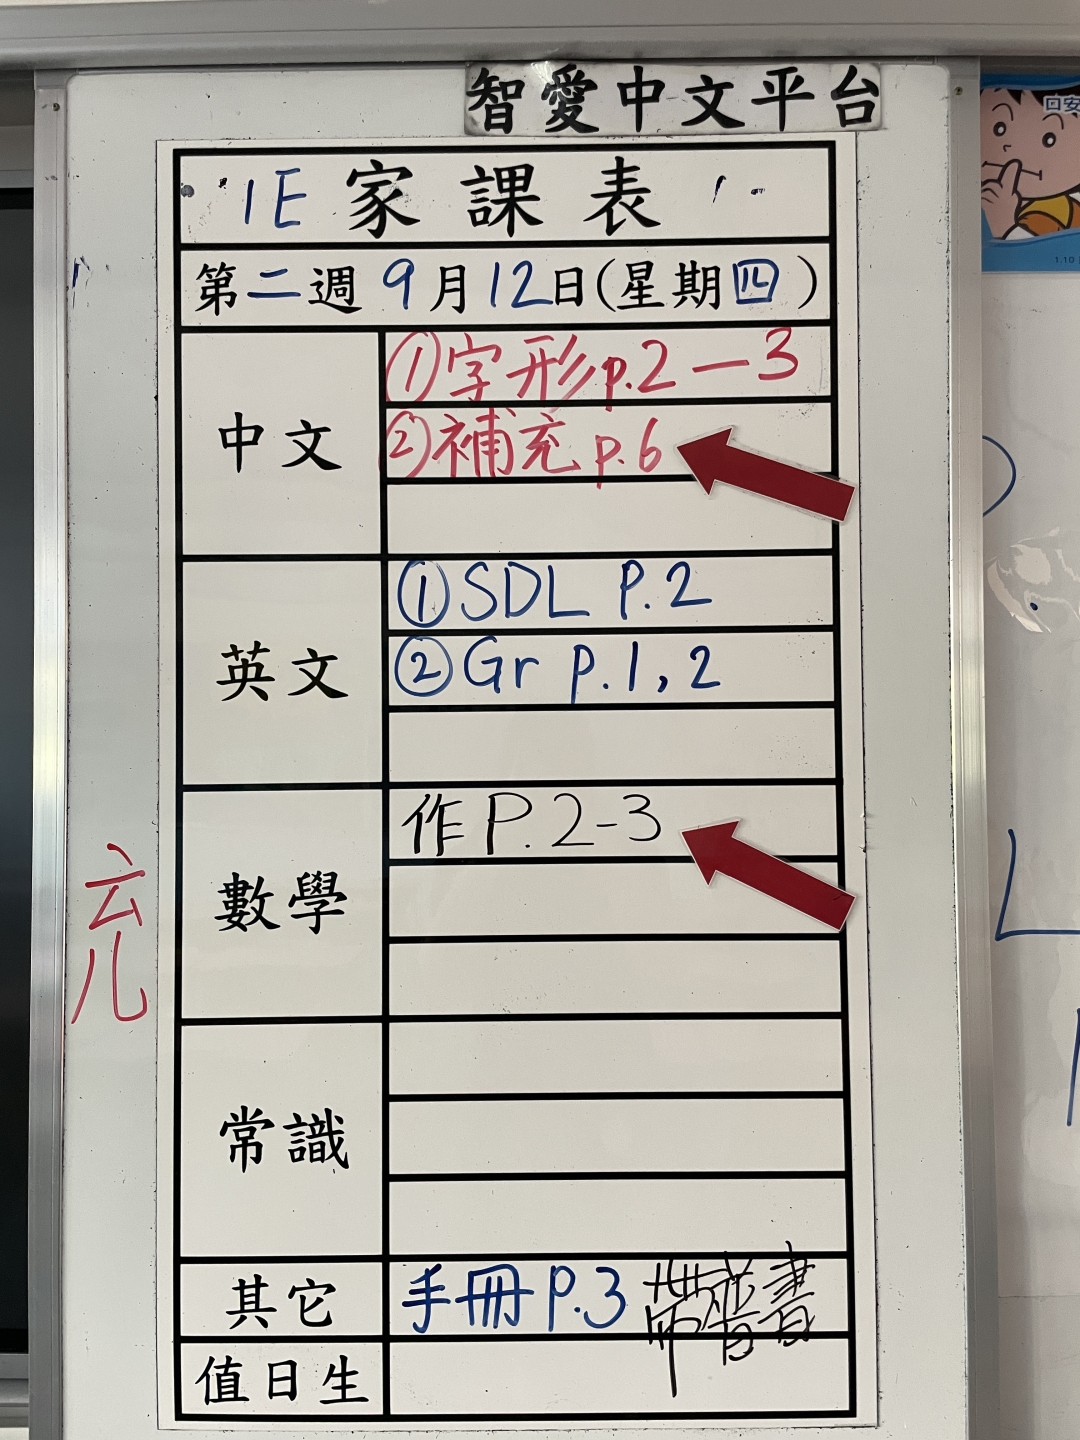 智愛中文平台
1E 家課表
第二週 9月12日(星期四)
中文
①字形p.2—3
②補充 p.6
英文
①SDL P.2
②Gr p.1,2
數學
作P.2-3
常識
其它
手冊P.3 帶普書
值日生
云
儿
口安
1.10